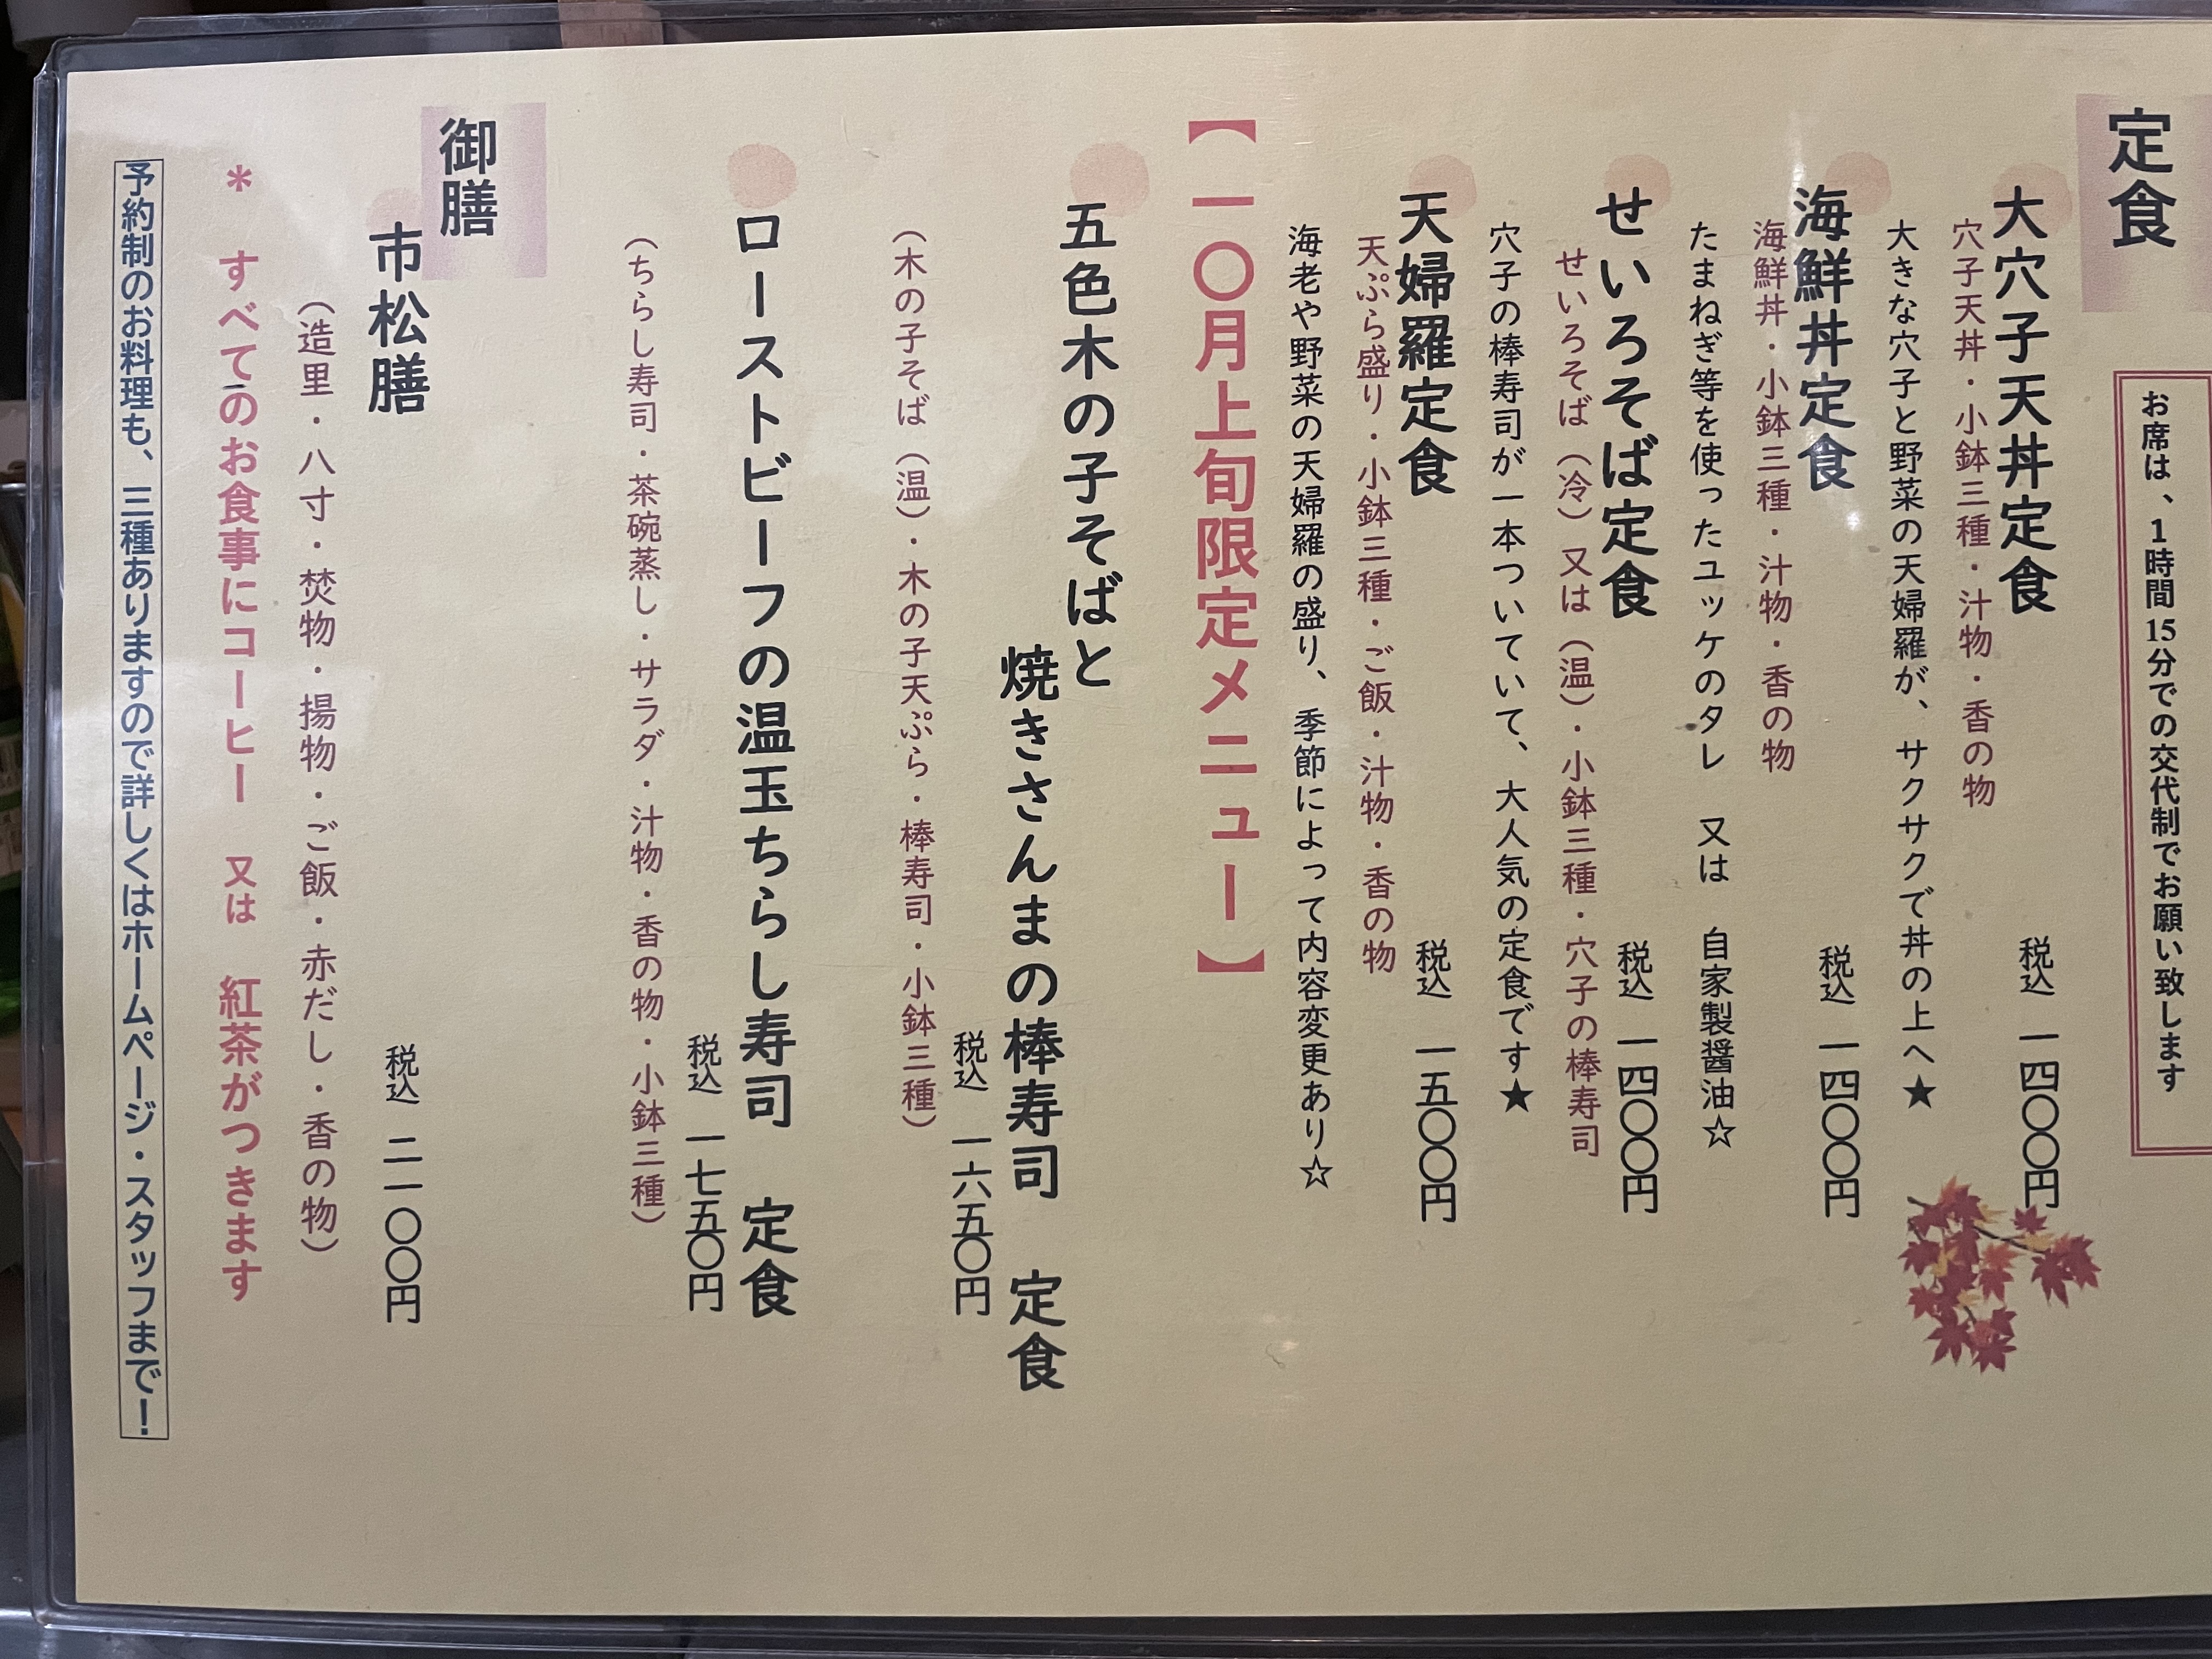 定食
お席は、1時間15分での交代制でお願い致します
大穴子天丼定食
税込 一四〇〇円
穴子天丼・小鉢三種・汁物・香の物
大きな穴子と野菜の天婦羅が、サクサクで丼の上へ★
海鮮丼定食
税込 一四〇〇円
海鮮丼・小鉢三種・汁物・香の物
たまねぎ等を使ったユッケのタレ 又は 自家製醤油☆
せいろそば定食
税込 一四〇〇円
せいろそば（冷）又は（温）・小鉢三種・穴子の棒寿司
穴子の棒寿司が一本ついていて、大人気の定食です★
天婦羅定食
税込 一五〇〇円
天ぷら盛り・小鉢三種・ご飯・汁物・香の物
海老や野菜の天婦羅の盛り、季節によって内容変更あり☆
【一〇月上旬限定メニュー】
五色木の子そばと
焼きさんまの棒寿司 定食
税込 一六五〇円
（木の子そば（温）・木の子天ぷら・棒寿司・小鉢三種）
ローストビーフの温玉ちらし寿司 定食
税込 一七五〇円
（ちらし寿司・茶碗蒸し・サラダ・汁物・香の物・小鉢三種）
御膳
市松膳
税込 二一〇〇円
（造里・八寸・焚物・揚物・ご飯・赤だし・香の物）
＊ すべてのお食事にコーヒー 又は 紅茶がつきます
予約制のお料理も、三種ありますので詳しくはホームページ・スタッフまで！